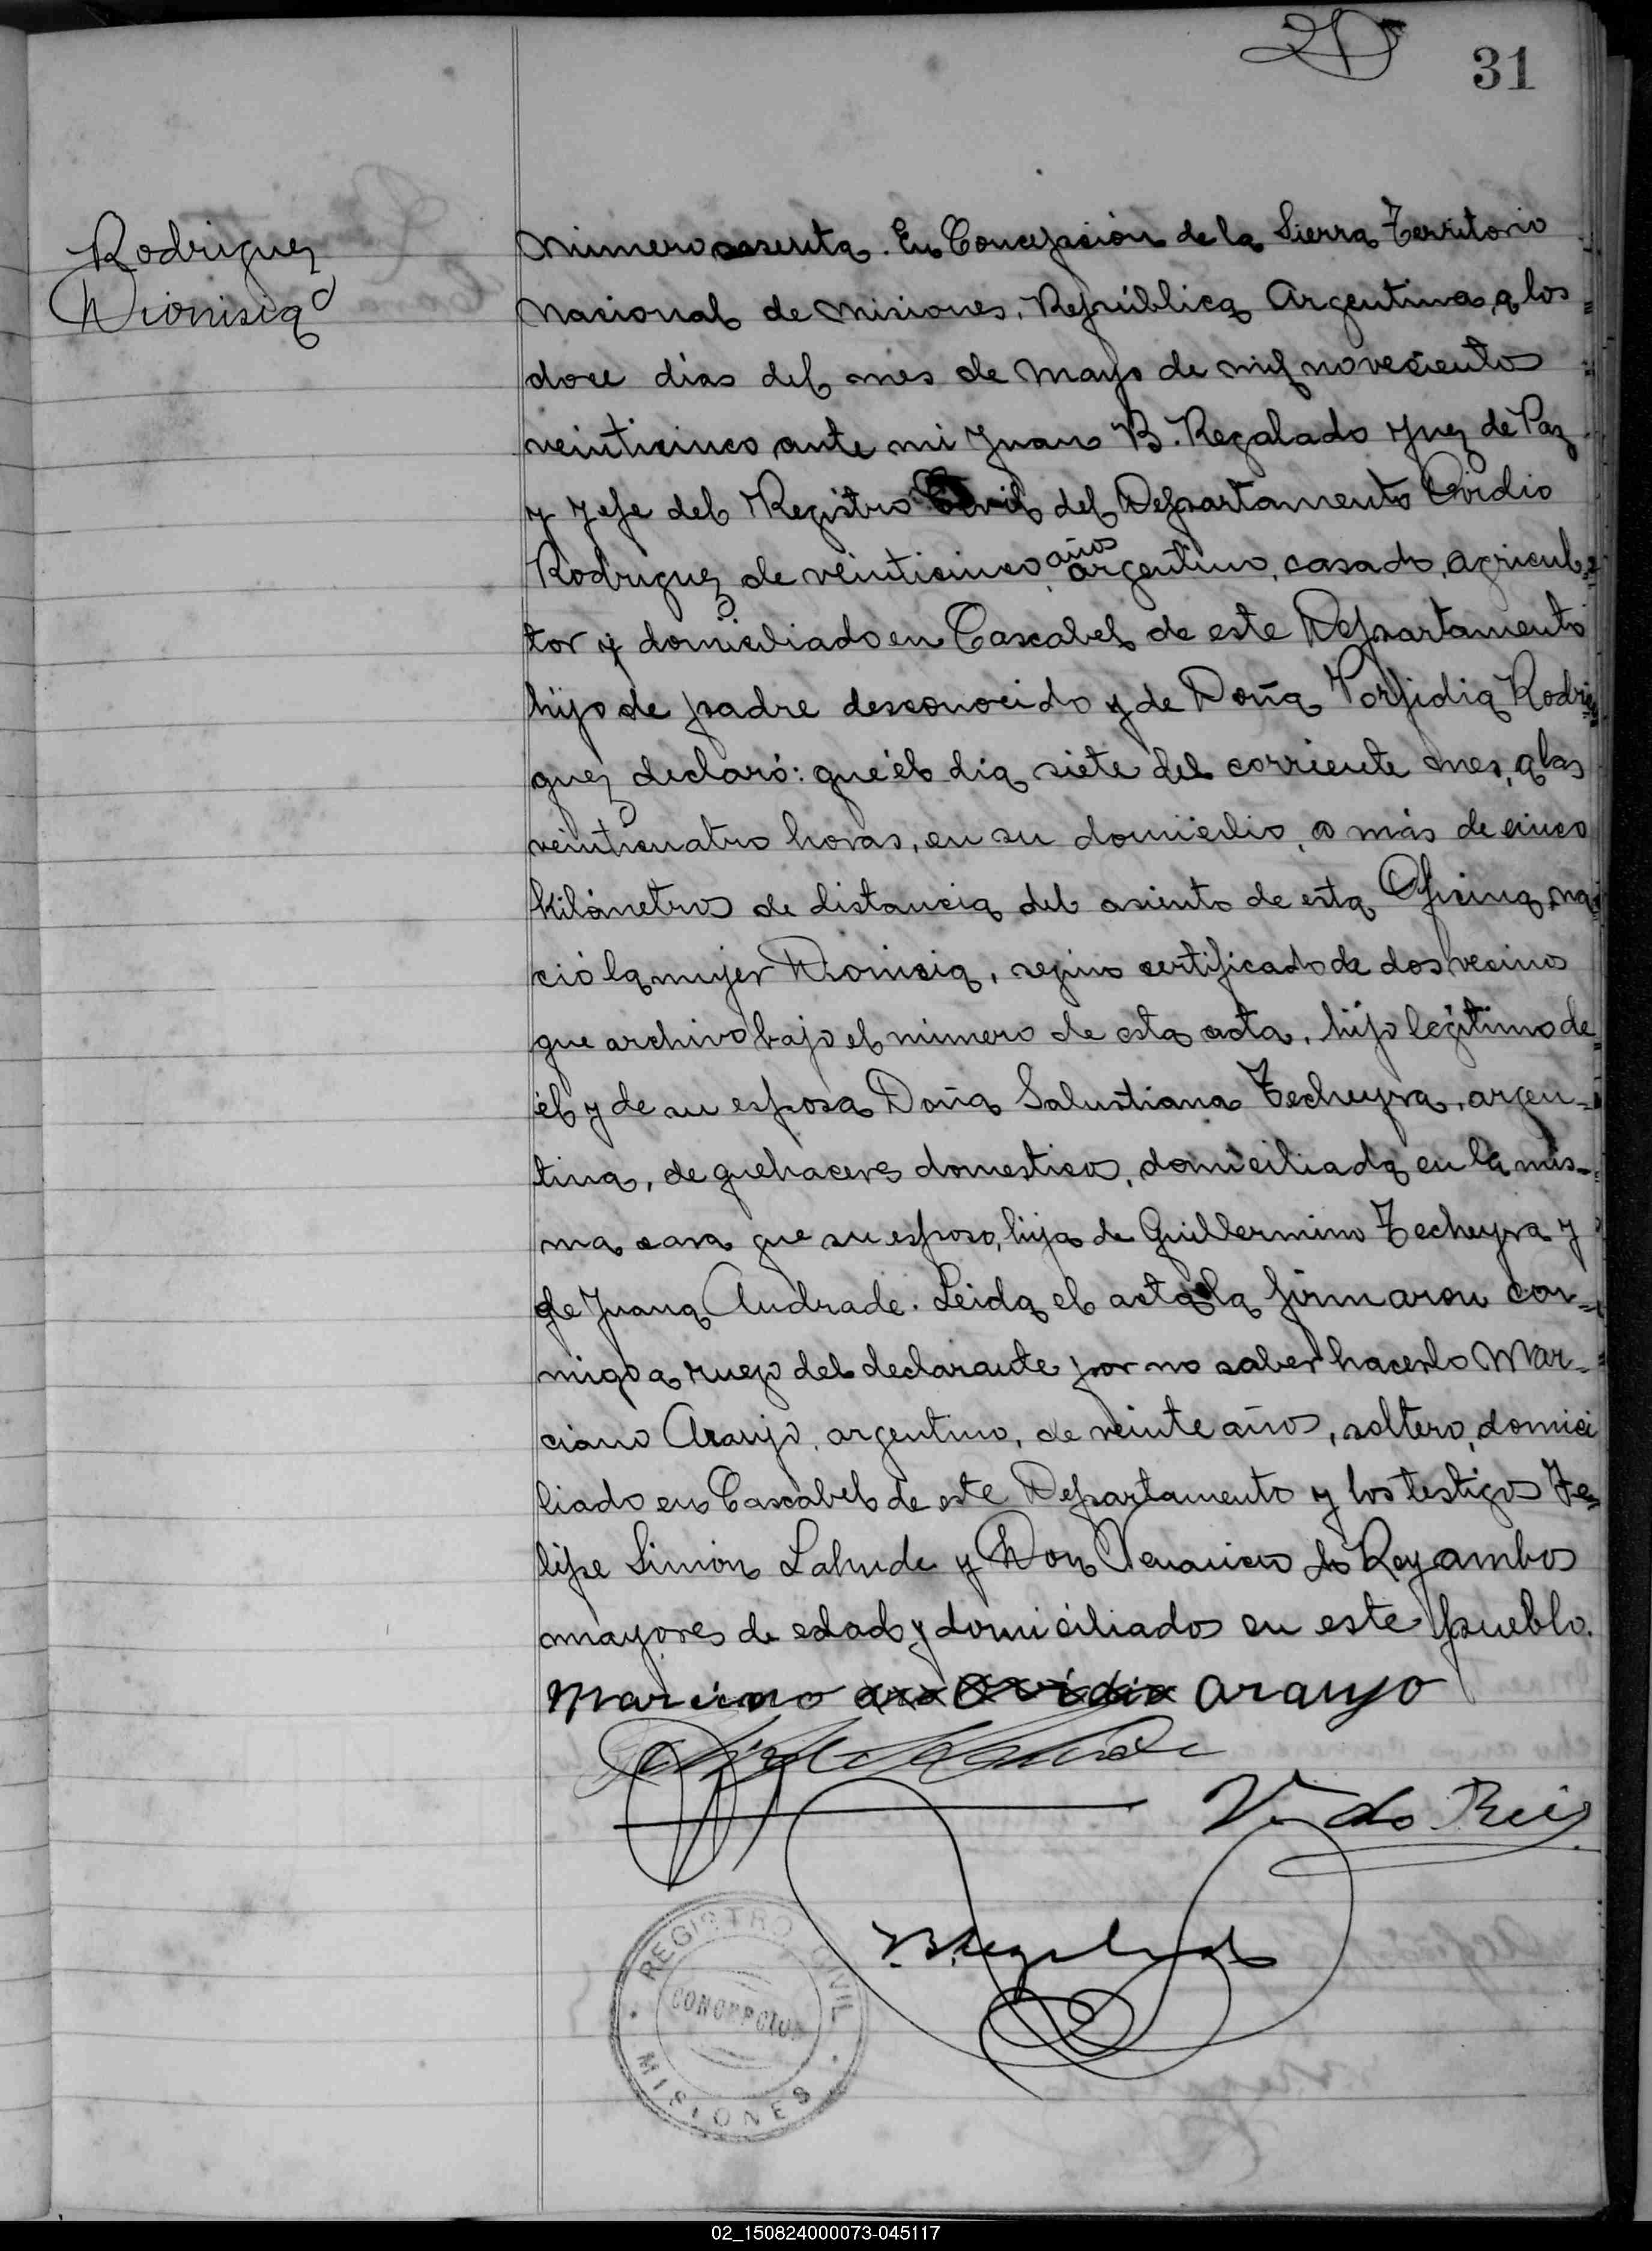 31
Rodriguez
Dionisia
Número sesenta. En Concepción de la Sierra Territorio
Nacional de Misiones, República Argentina, a los
doce días del mes de Mayo de mil novecientos
veinticinco ante mi Juan B. Regalado Juez de Paz
y Jefe del Registro Civil del Departamento Ovidio
Rodriguez de veinticinco años argentino, casado, agricul-
tor y domiciliado en Cascabel de este Departamento
hijo de padre desconocido y de Doña Porfidia Rodri-
guez declaró: que el día siete del corriente mes, a las
veinticuatro horas, en su domicilio, a más de cinco
kilómetros de distancia del asiento de esta Oficina, na-
ció la mujer Dionisia, según certificado de dos vecinos
que archivo bajo el número de esta acta, hijo legítimo de
él y de su esposa Doña Salustiana Techeyra, argen-
tina, de quehaceres domesticos, domiciliada en la mis-
ma casa que su esposo, hija de Guillermino Techeyra y
de Juana Andrade. Leida el acta la firmaron con-
migo a ruego del declarante por no saber hacerlo Mar-
ciano Araujo, argentino, de veinte años, soltero, domici
liado en Cascabel de este Departamento y los testigos Fe-
lipe Simón Lahude y Don Venancio do Rey ambos
mayores de edad y domiciliados en este pueblo.
Marciano Ovidio Araujo
V. do Reis
B. Regalado
REGISTRO CIVIL
CONCEPCION
MISIONES
02_150824000073-045117